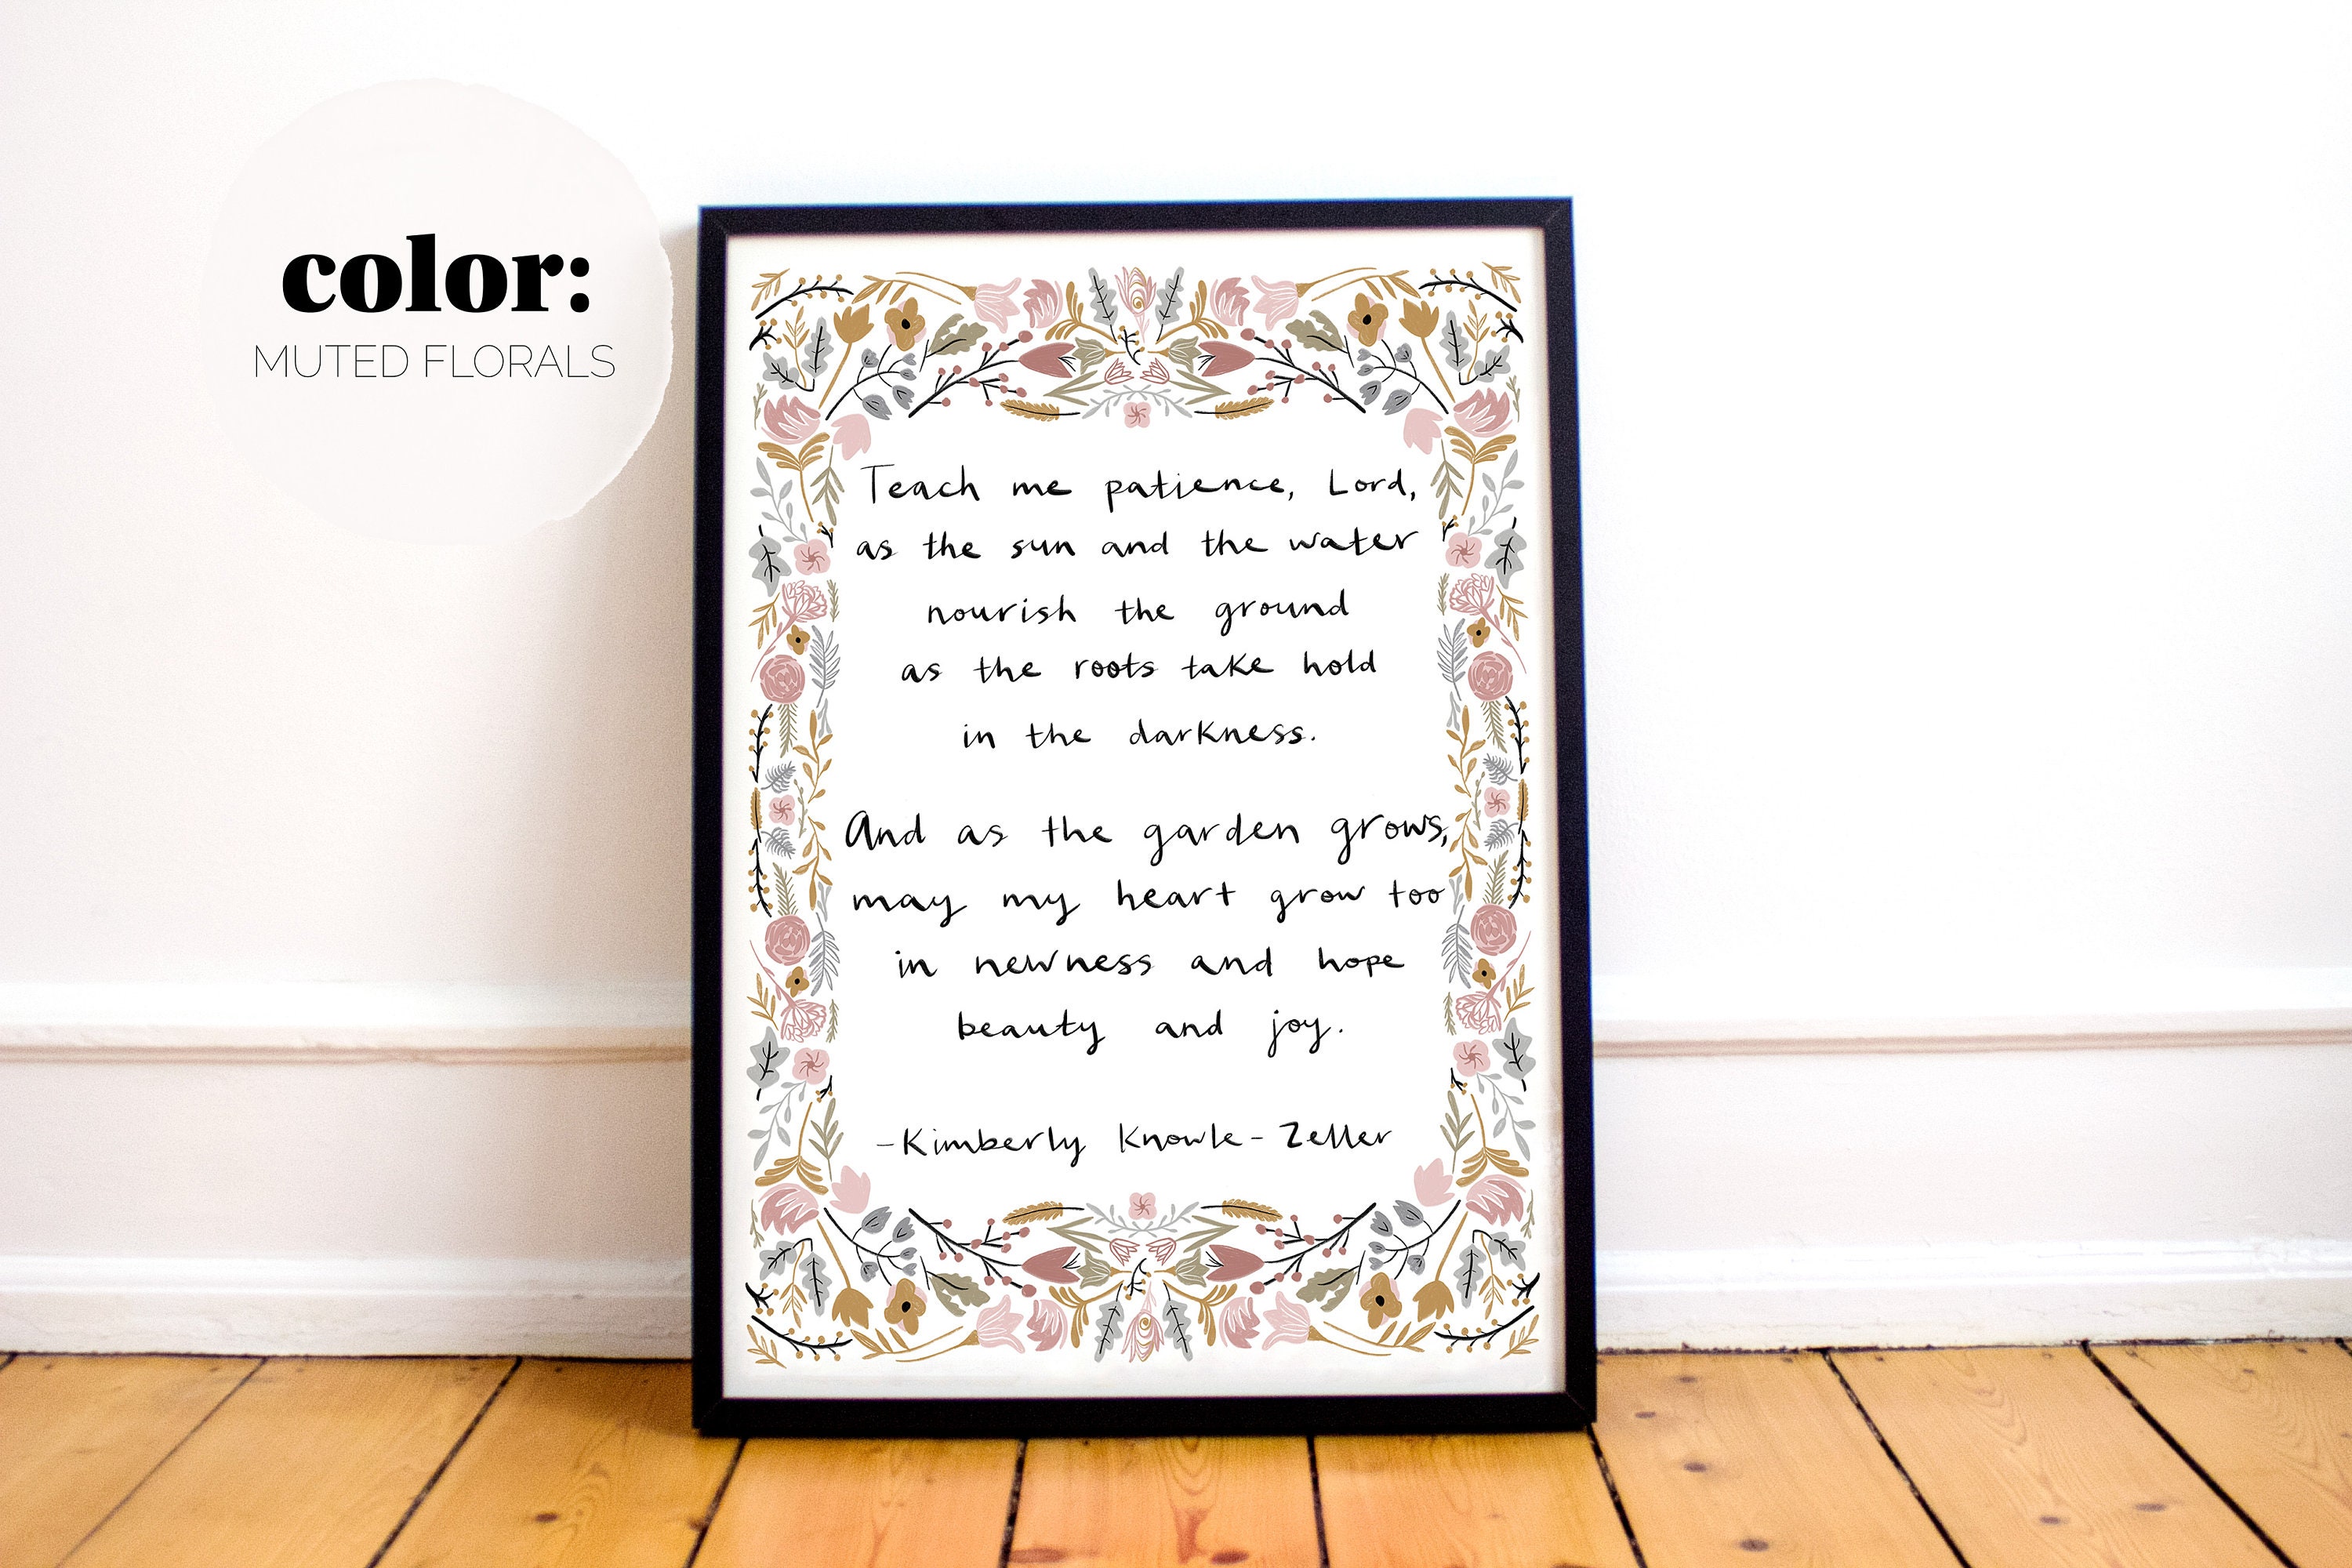 color:
MUTED FLORALS
Teach me patience, Lord,
as the sun and the water
nourish the ground
as the roots take hold
in the darkness.
And as the garden grows,
may my heart grow too
in newness and hope
beauty and joy.
-Kimberly Knowle-Zeller